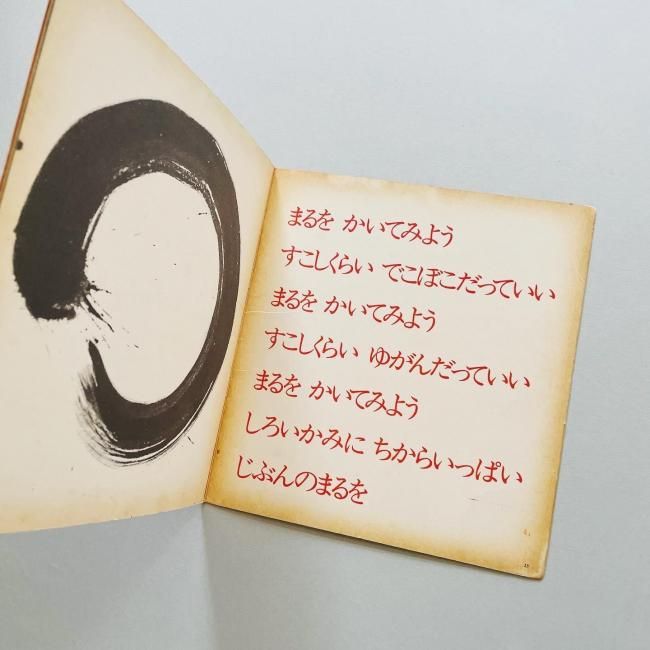 まるを かいてみよう
すこしくらい でこぼこだっていい
まるを かいてみよう
すこしくらい ゆがんだっていい
まるを かいてみよう
しろいかみに ちからいっぱい
じぶんのまるを